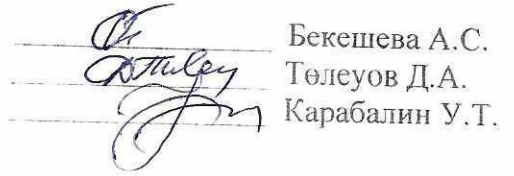 Бекешева А.С.
Төлеуов Д.А.
Карабалин У.Т.